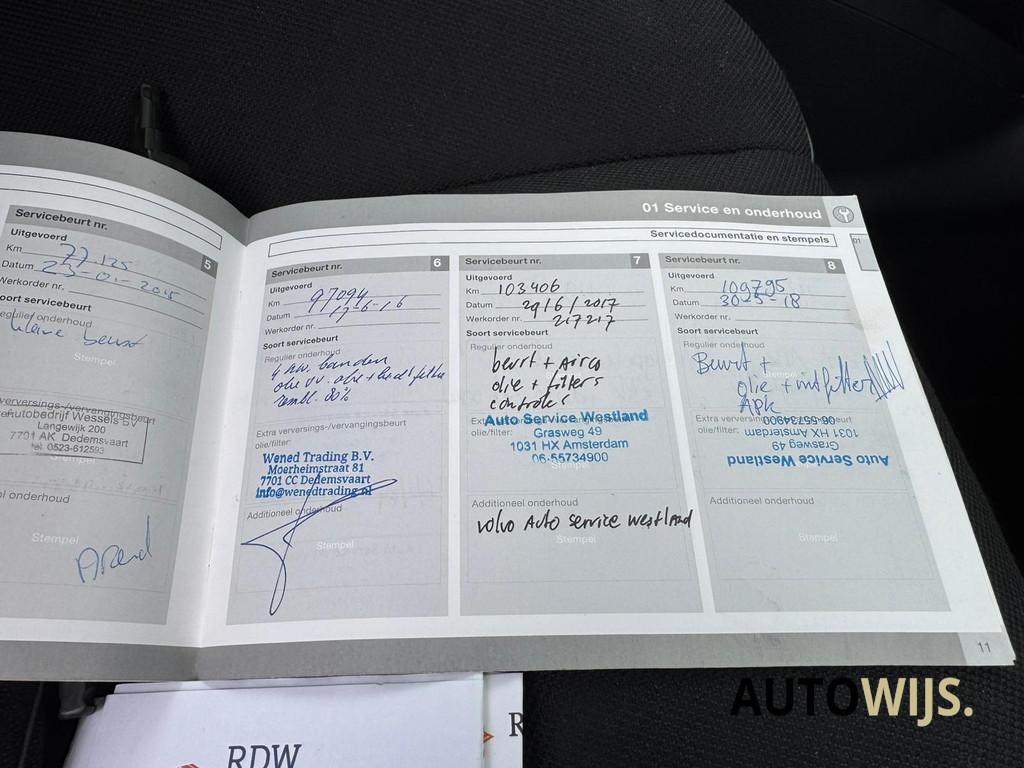 01 Service en onderhoud
Servicedocumentatie en stempels
01
Servicebeurt nr.
5
Uitgevoerd
Km 77.125
Datum 23-01-2015
Werkorder nr.
Soort servicebeurt
Regulier onderhoud
kleine beurt
Stempel
verversings-/vervangingsbeurt
Autobedrijf Wessels BV
Langewijk 200
7701 AK Dedemsvaart
tel. 0523-612593
Stempel
el onderhoud
Stempel
Servicebeurt nr.
6
Uitgevoerd
Km 97094
Datum 17-6-16
Werkorder nr.
Soort servicebeurt
Regulier onderhoud
4 nw. banden
olie vv. olie + lucht filter
remblo. 80%
Extra verversings-/vervangingsbeurt
olie/filter:
Wened Trading B.V.
Moerheimstraat 81
7701 CC Dedemsvaart
info@wenedtrading.nl
Additioneel onderhoud
Stempel
Servicebeurt nr.
7
Uitgevoerd
Km 103406
Datum 29/6/2017
Werkorder nr. 217217
Soort servicebeurt
Regulier onderhoud
beurt + Airco
olie + filters
controles
Auto Service Westland
olie/filter:
Grasweg 49
1031 HX Amsterdam
06-55734900
Additioneel onderhoud
Volvo Auto Service Westland
Stempel
Servicebeurt nr.
8
Uitgevoerd
Km 109795
Datum 30-5-18
Werkorder nr.
Soort servicebeurt
Regulier onderhoud
Beurt +
Stempel
olie + int filter
APK
Extra verversings-/vervangingsbeurt
olie/filter:
06-55734900
1031 HX Amsterdam
Grasweg 49
Auto Service Westland
Additioneel onderhoud
Stempel
11
RDW
R
AUTOWIJS.